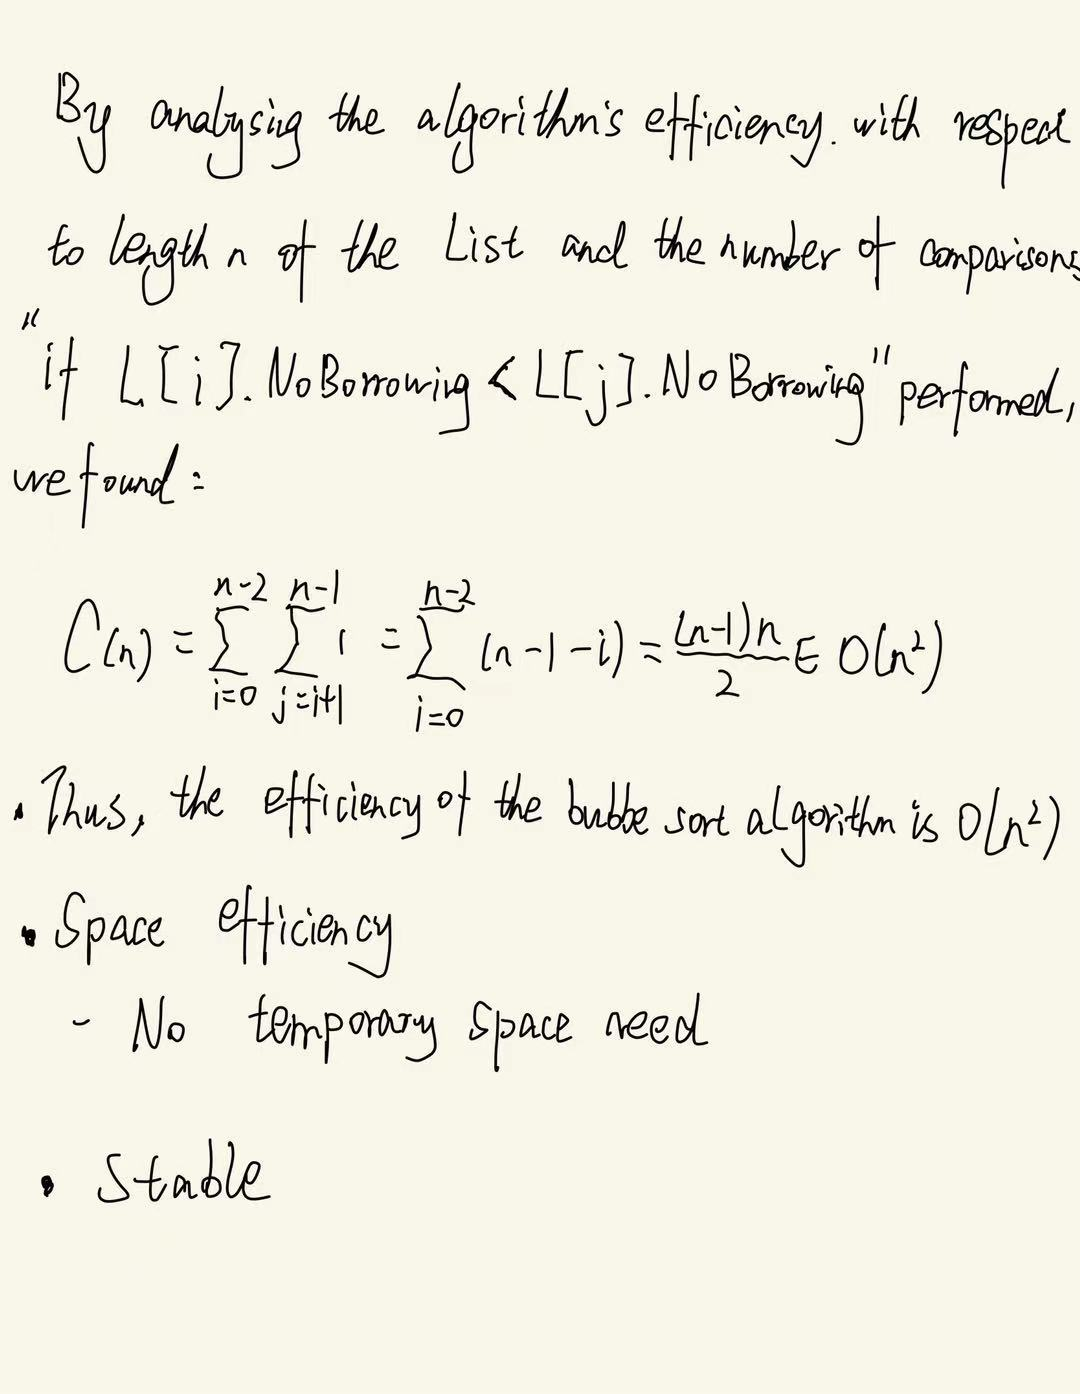 By analysing the algorithm's efficiency. with respect
to length n of the List and the number of comparisons
"if L[i].NoBorrowing < L[j].NoBorrowing" performed,
we found:
C(n) = \sum_{i=0}^{n-2} \sum_{j=i+1}^{n-1} 1 = \sum_{i=0}^{n-2} (n-1-i) = \frac{(n-1)n}{2} ∈ O(n²)
• Thus, the efficiency of the bubbe sort algorithm is O(n²)
• Space efficiency
- No temporary space need
• Stable